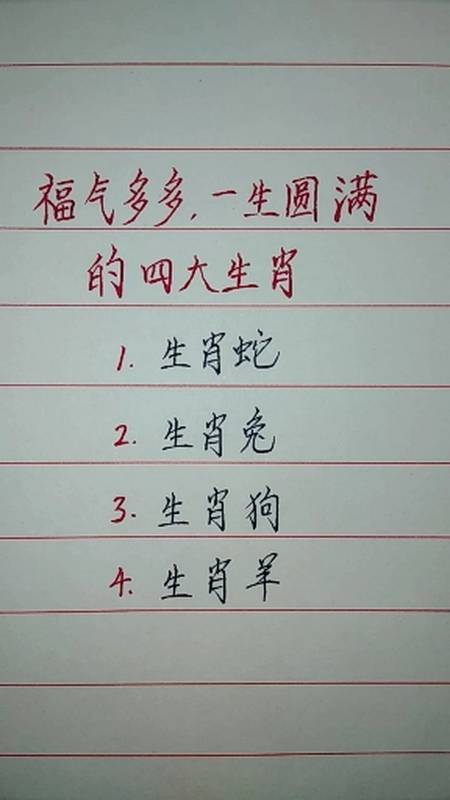 福气多多,一生圆满
的四大生肖
1. 生肖蛇
2. 生肖兔
3. 生肖狗
4. 生肖羊